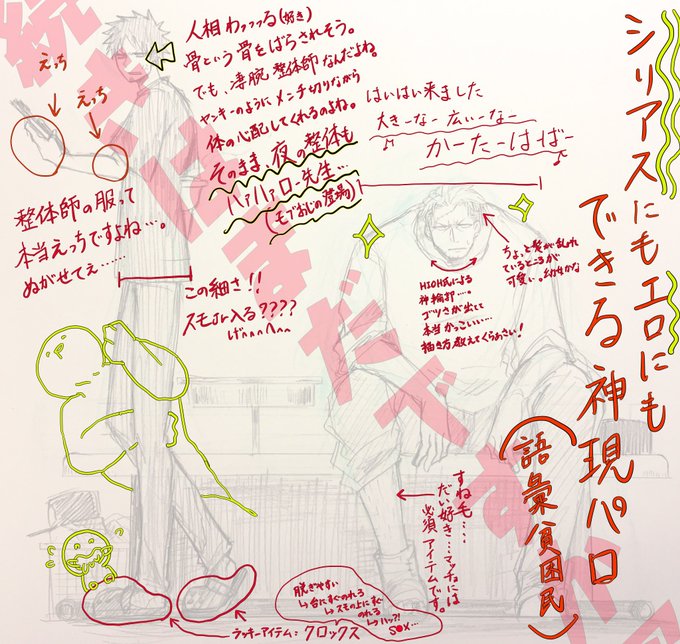 シリアスにもエロにも
できる神現パロ
(語彙貧困民)
人相わっっっる(好き)
骨という骨をばらされそう。
でも、凄腕整体師なんだよね。
ヤンキーのようにメンチ切りながら
体の心配してくれるのよね。
そのまま、夜の整体も
ハァハァロー先生…
(モブおじの登場)
はいはい来ました
大きーなー広いーなー
かーたーはーばー
えっち
えっち
整体師の服って
本当えっちですよね…。
ぬがせてぇ……
この細さ!!
スモJr入る????
げへへへへ
ちょっと髪が乱れ
ているところが
可愛い。幼妻かな
HSOH氏による
神輪郭…。
ゴツさが出てて
本当かっこいい…
描き方教えてくらぁさい!
すね毛…
だい好き…マッチョには
必須アイテムです。
脱ぎやすい
↳台にすぐのれる
↳スモの上にすぐ
のれる
↳ハッ?!
SOX…
ラッキーアイテム:クロックス
続きはまだですか